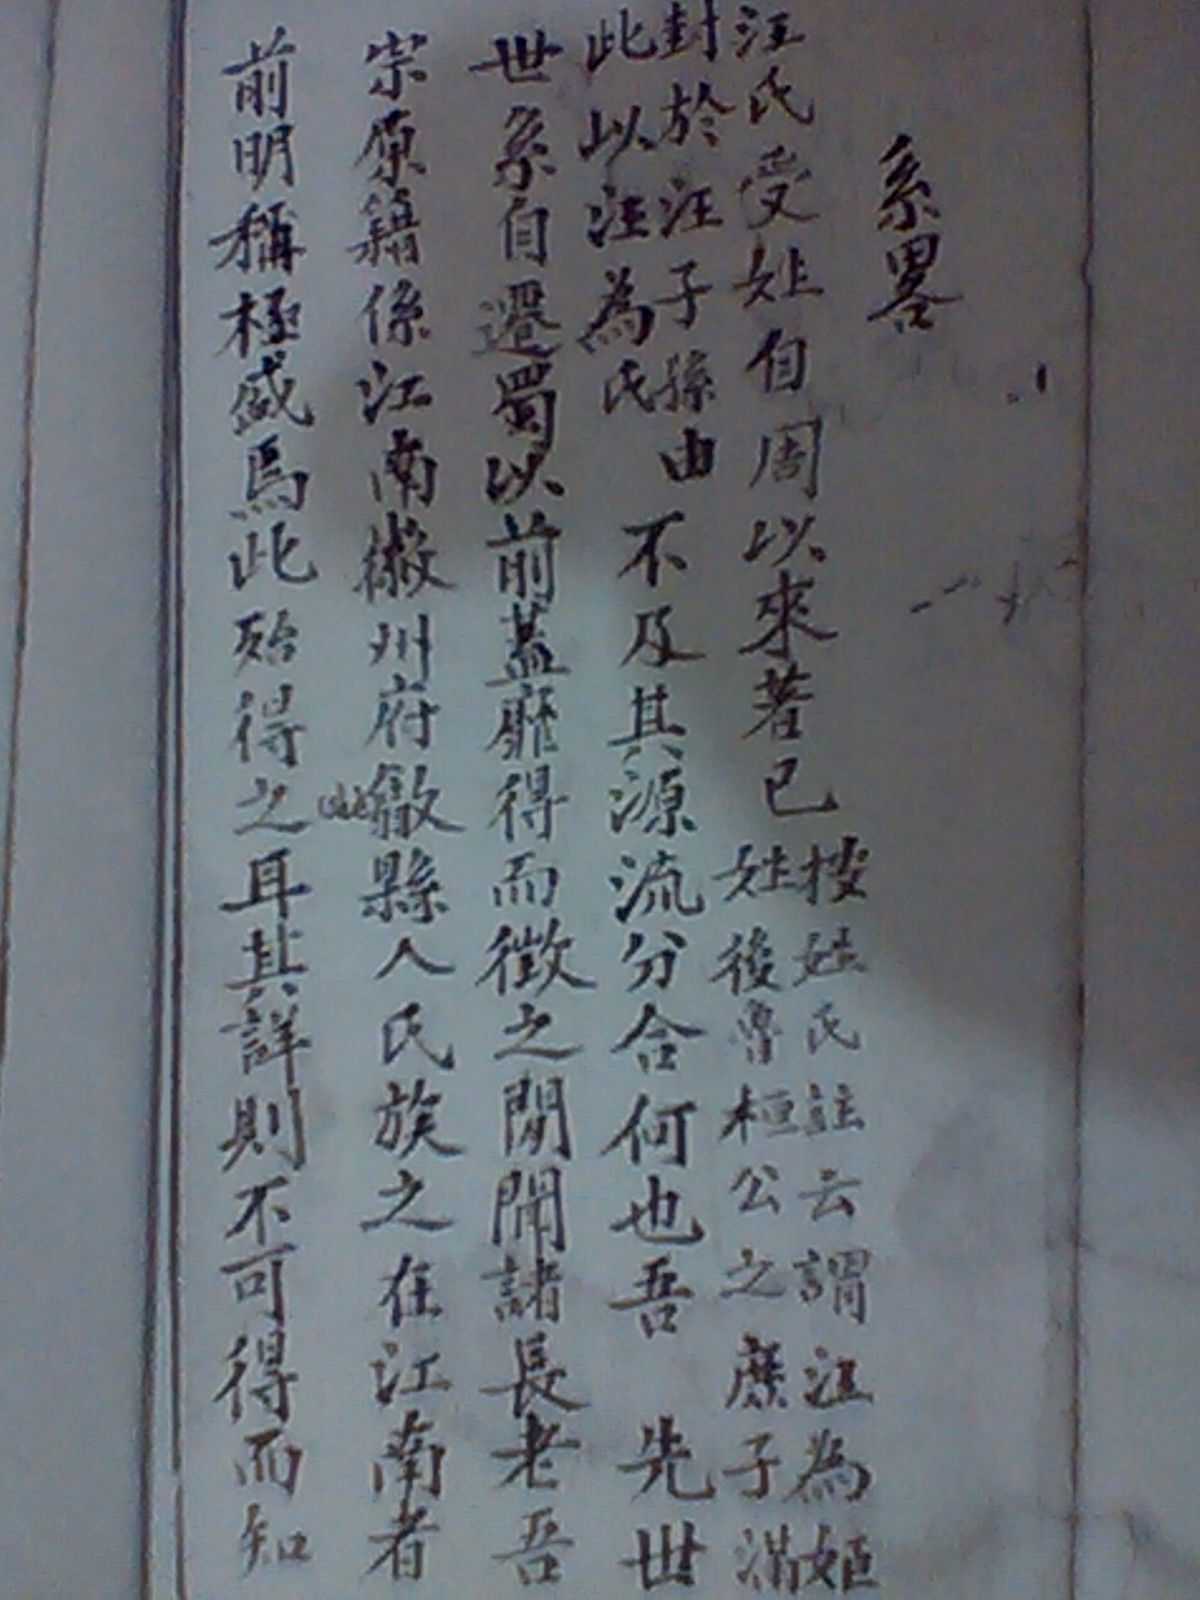 系畧
汪氏受姓自周以來著已按姓氏註云謂汪為姬
姓後魯桓公之庶子滿
封於汪子孫由
此以汪為氏不及其源流分合何也吾先世
世系自遷蜀以前蓋靡得而徵之間聞諸長老吾
宗原籍係江南徽州府歙縣人氏族之在江南者
前明稱極盛焉此殆得之耳其詳則不可得而知